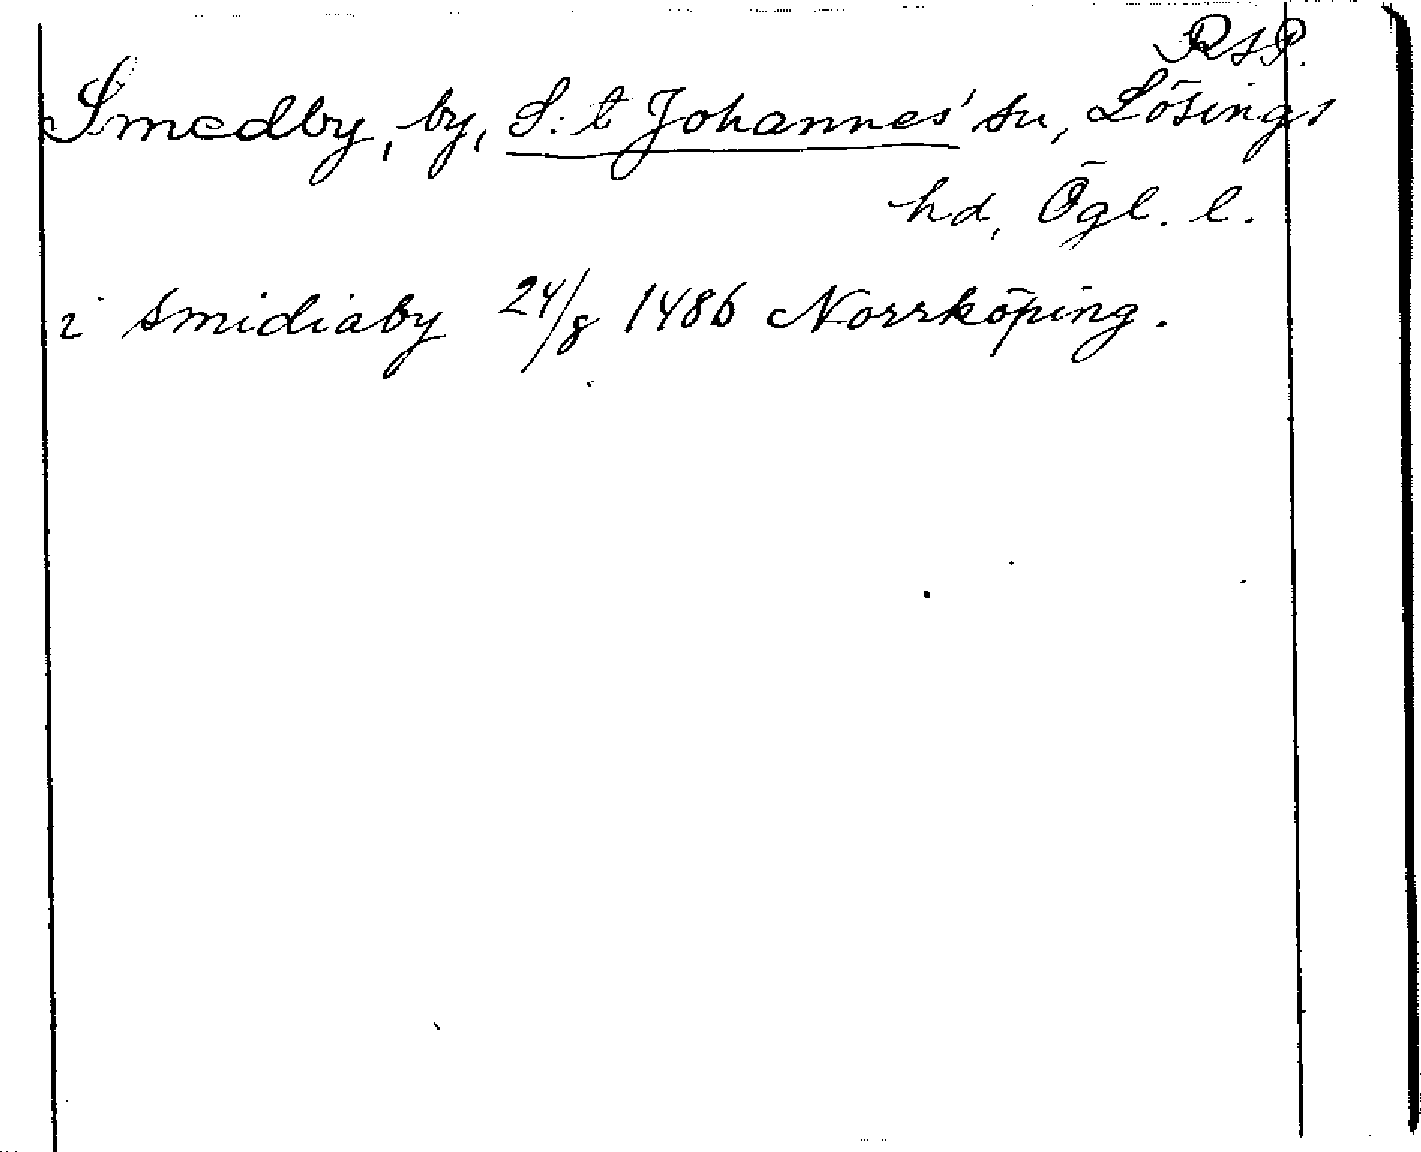 RAP.
Smedby, by, S:t Johannes' sn, Lösings
hd, Ögl. l.
i smidiaby 24/8 1486 Norrköping.